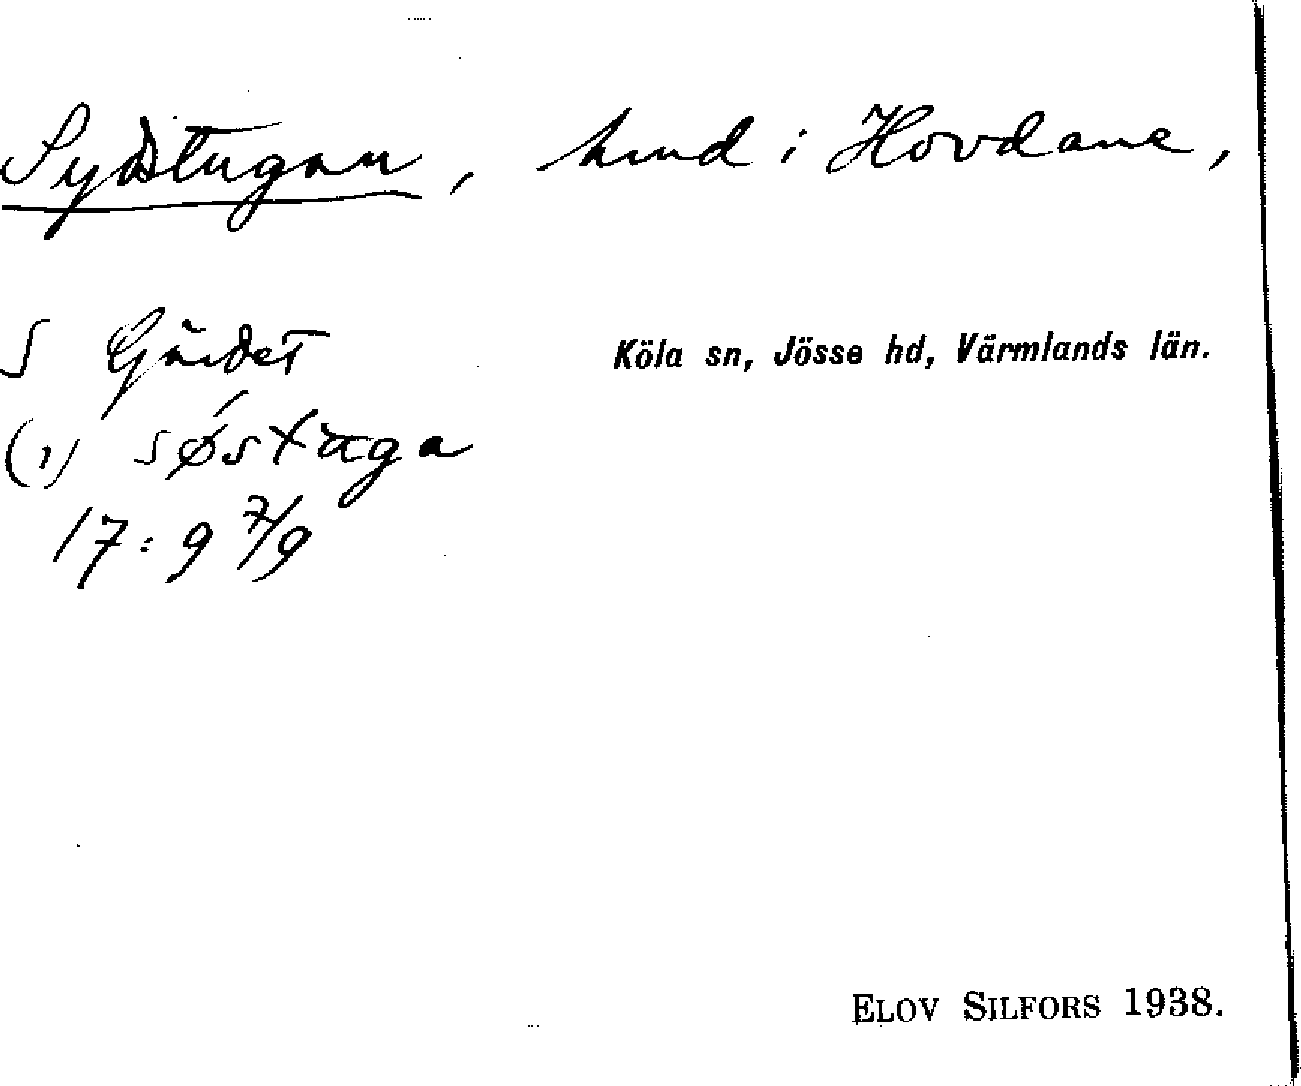 Sydstugan, hmd i Hovdane,
S Gärdet
Köla sn, Jösse hd, Värmlands län.
(1) søstuga
17:9 7/9
ELOV SILFORS 1938.